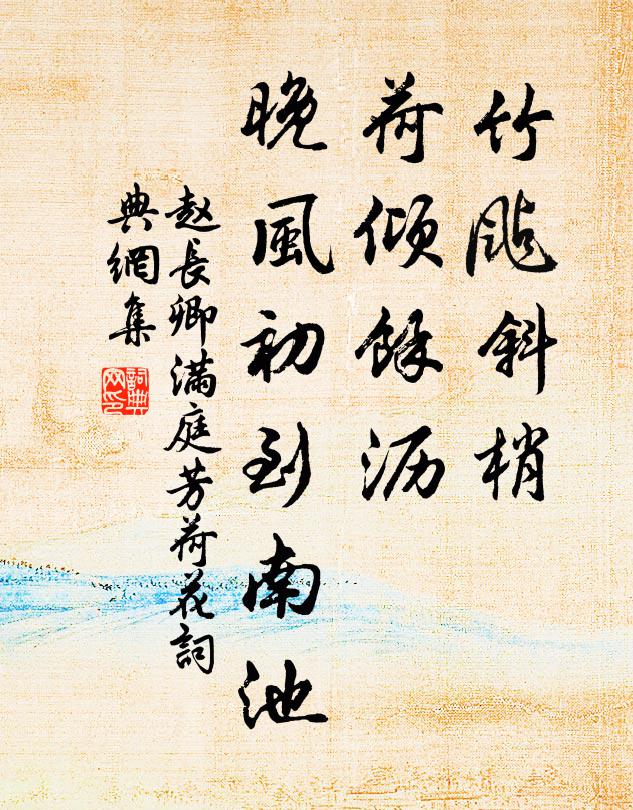 竹颭斜梢
荷傾餘沥
晚風初到南池
赵長卿滿庭芳荷花詞
典網集
詞典网印